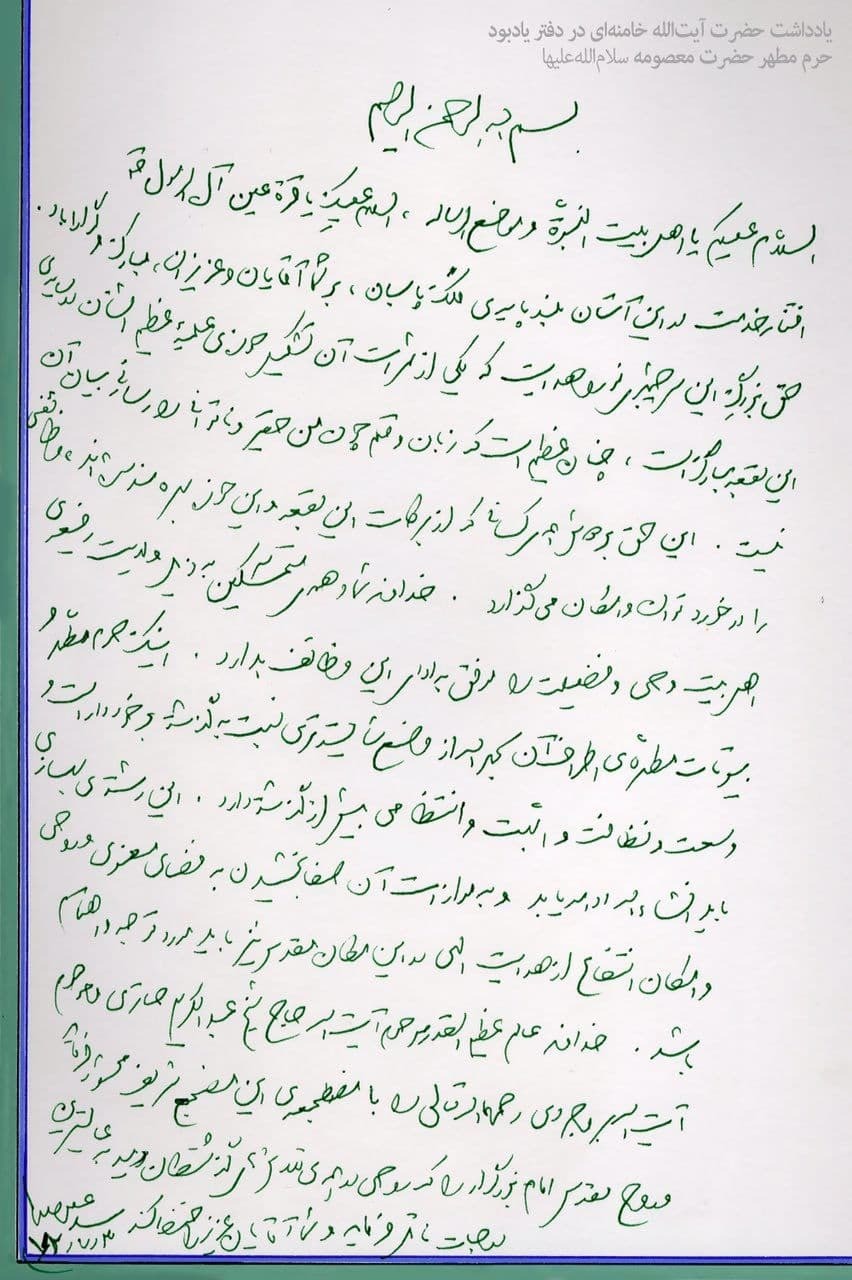 یادداشت حضرت آیت‌الله خامنه‌ای در دفتر یادبود
حرم مطهر حضرت معصومه سلام‌الله‌علیها
بسم الله الرحمن الرحیم
السلام علیکم یا اهل بیت النبوة و موضع الرسالة ، السلام علیکِ یا قرة عین آل الرسول
افتخار خدمت در این آستان بلندپایه‌ی ملک پاسبان ، بر شما آقایان و عزیزان ، مبارک و گوارا باد .
حق بزرگ این سرچشمه‌ی نور و هدایت که یکی از ثمرات آن تشکیل حوزه‌ی علمیه‌ی عظیم الشأن در
این بقعه‌ی مبارکه است ، چنان عظیم است که زبان و قلم چون من حقیر و ناتوانی را یارای بیان آن
نیست . این حق بر دوش همه‌ی کسانی که از برکات این بقعه و این حوزه بهره‌مند شده‌اند ، وظائفی
را در خورد توان و امکان می‌گذارد . خداوند شما و همه‌ی متمسکین به ذیل ولایت
اهل بیت وحی و فضیلت را موفق به ادای این وظائف بدارد . اینک حرم مطهر و
بیوتات مطهره‌ی اطراف آن بحمدالله از وضع شایسته‌تری نسبت به گذشته برخوردار است و
وسعت و نظافت و ابهت و انتظامی بیش از گذشته دارد . این رشته‌ی بهسازی
باید انشاءالله ادامه یابد و به موازات آن صفا بخشیدن به فضای معنوی و روحی
و امکان انتفاع از هدایت الهی در این مکان مقدس نیز باید مورد توجه و اهتمام
باشد . خداوند عالم عظیم القدر مرحوم آیت الله حاج شیخ عبدالکریم حائری و مرحوم
آیت الله بروجردی رحمهما الله تعالی را با مضطجعه‌ی این مضجع شریف محشور فرماید
و روح مقدس امام بزرگوار را که روحی در همه‌ی
درجات نائل فرماید و شما آقایان عزیز را حفظ کند